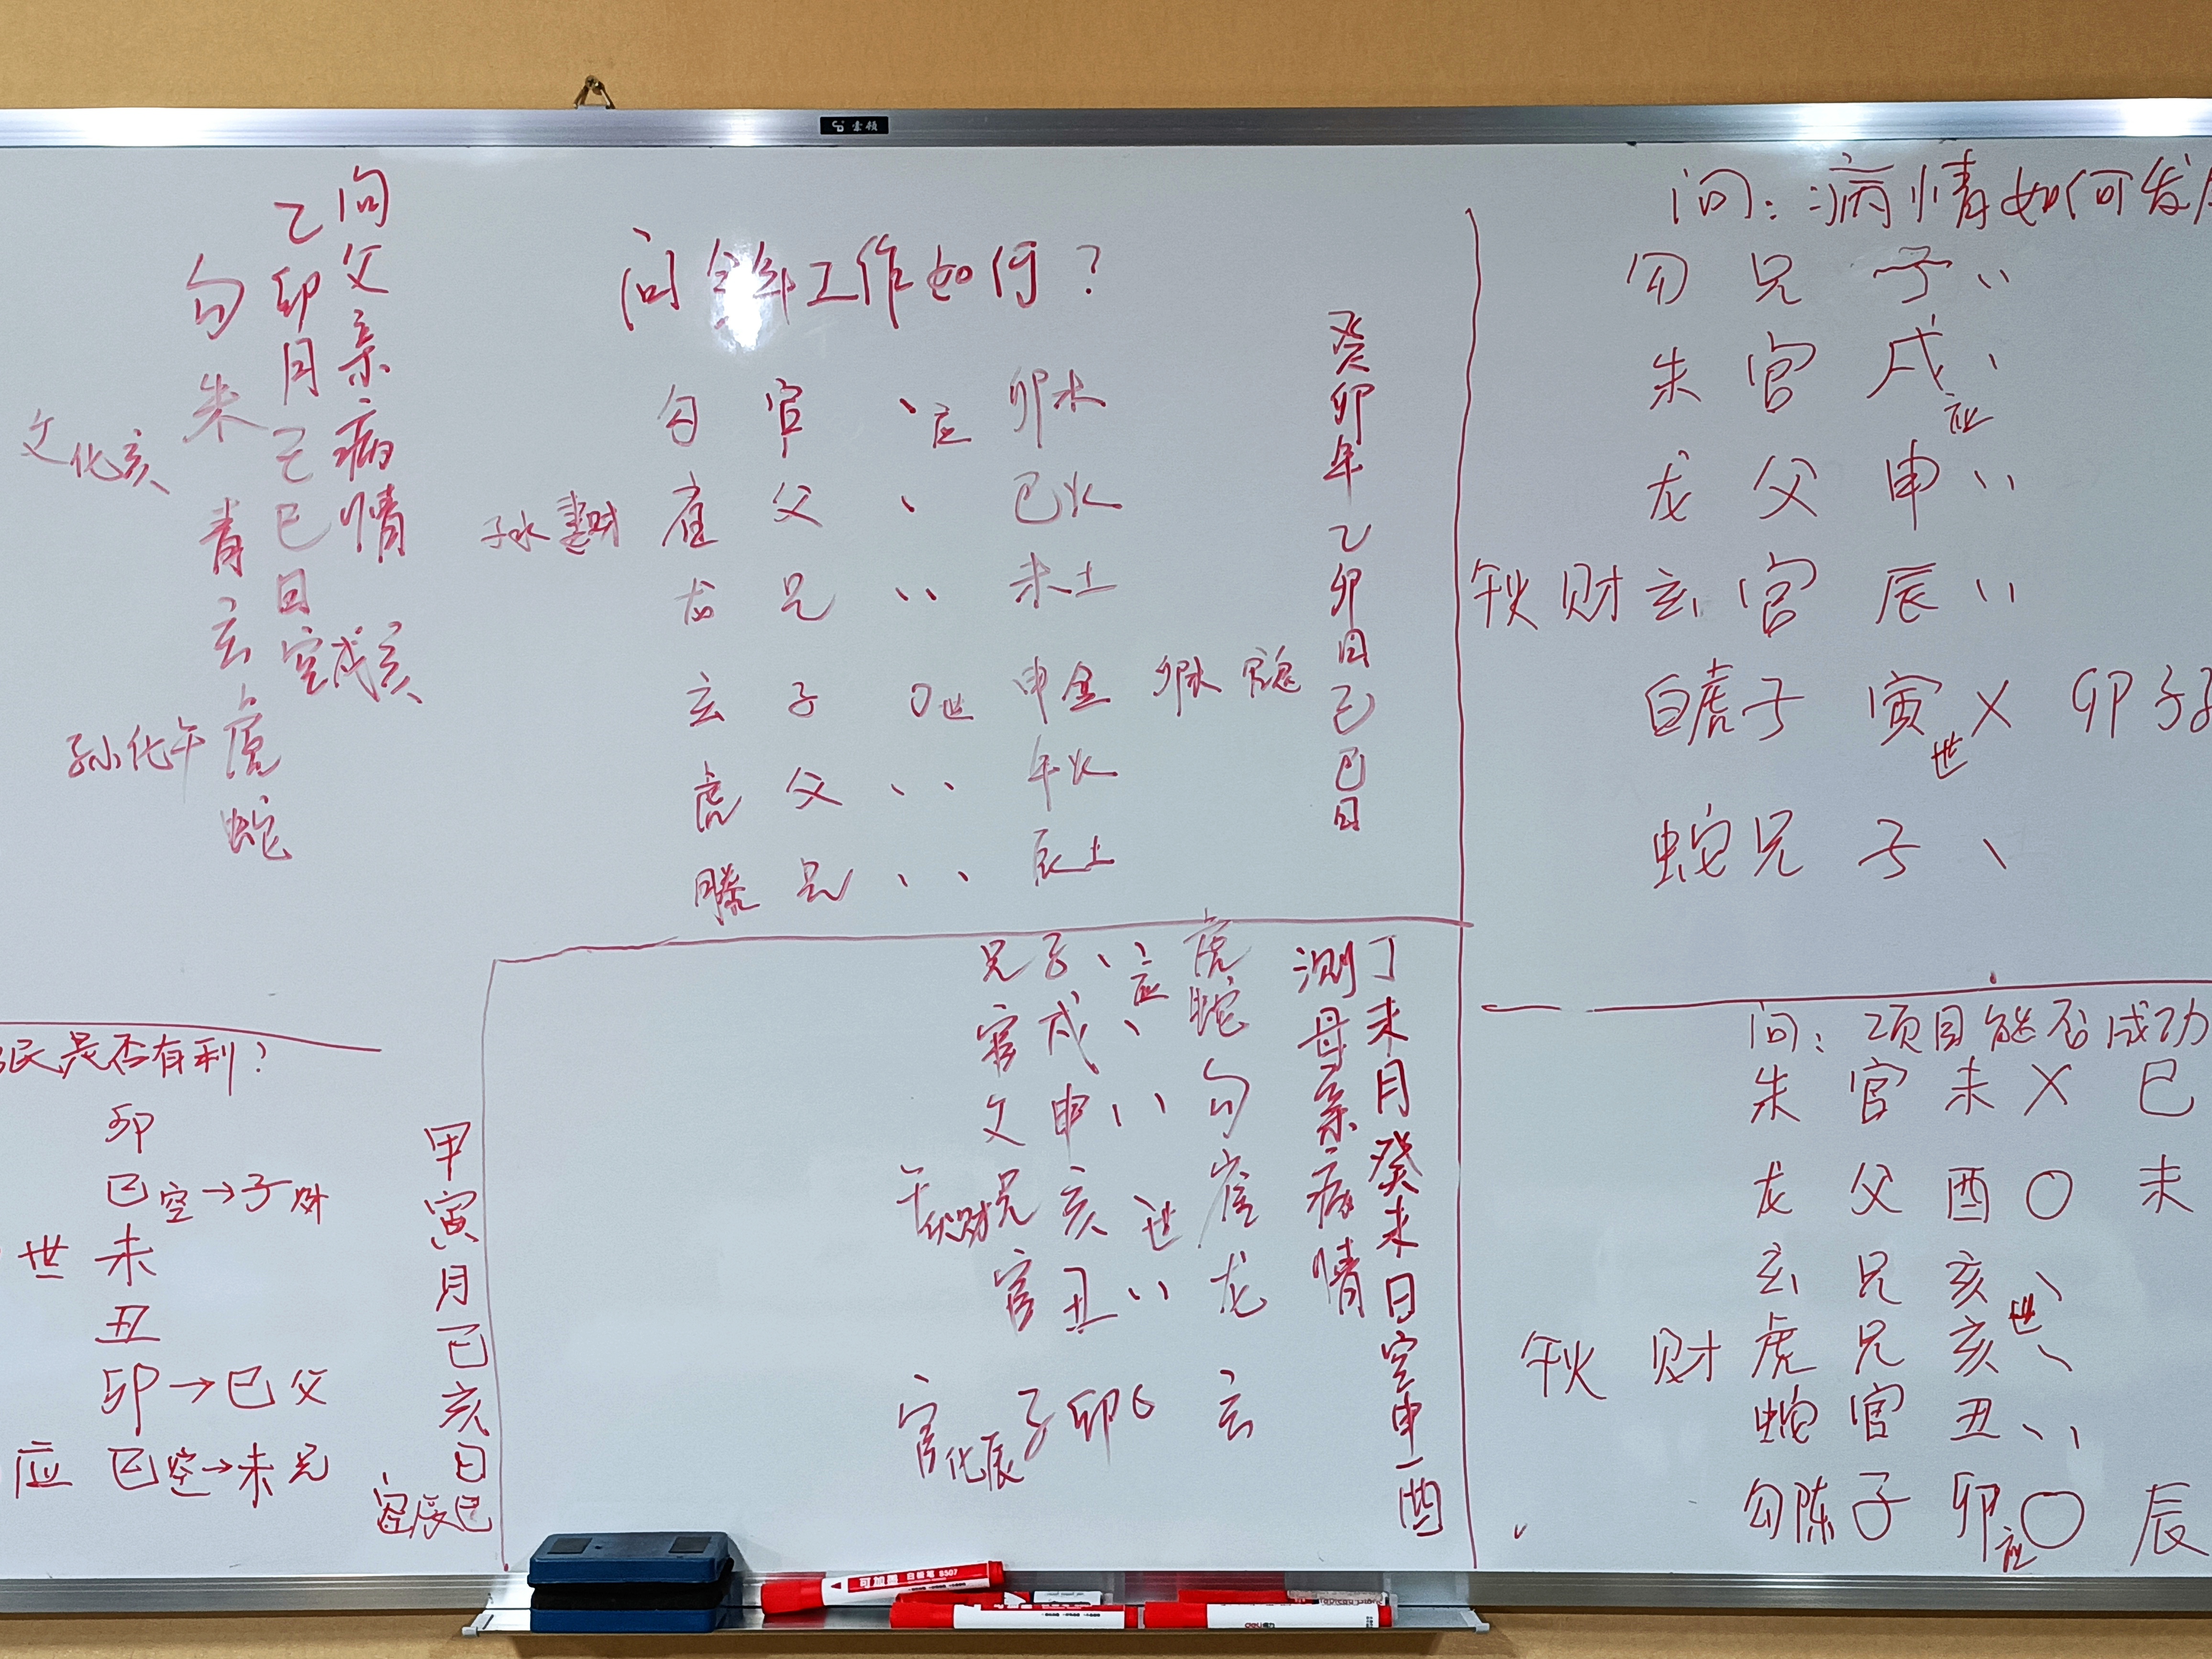 问父亲病情
乙卯月己巳日
空戌亥
勾
朱
青
玄
虎
蛇
父化亥
孙化午
问今年工作如何？
勾 官 、应 卯木
子水 妻财 雀 父 、 巳火
龙 兄 、、 未土
玄 子 〇世 申金 卯木 官鬼
虎 父 、、 午火
螣 兄 、、 辰土
癸卯年乙卯月己巳日
问：病情如何发
勾 兄 子 、、
朱 官 戌 、应
龙 父 申 、、
午火 财 玄 官 辰 、、
白虎 子 寅世 X 卯 子
蛇 兄 子 、
民是否有利？
卯
巳空→子财
世 未
丑
卯→巳父
应 巳空→未兄
甲寅月己亥日
空辰巳
丁未月癸未日空申酉
测母亲病情
兄 子 、、应 虎
官 戌 、 蛇
父 申 、、 勾
午火财 兄 亥 世 雀
官 丑 、、 龙
官化辰 子 卯 玄
问：项目能否成功
朱 官 未 X 巳
龙 父 酉 〇 未
玄 兄 亥世 、
午火 财 虎 兄 亥 、
蛇 官 丑 、、
勾陈 子 卯应 〇 辰
可加墨 白板笔 S507